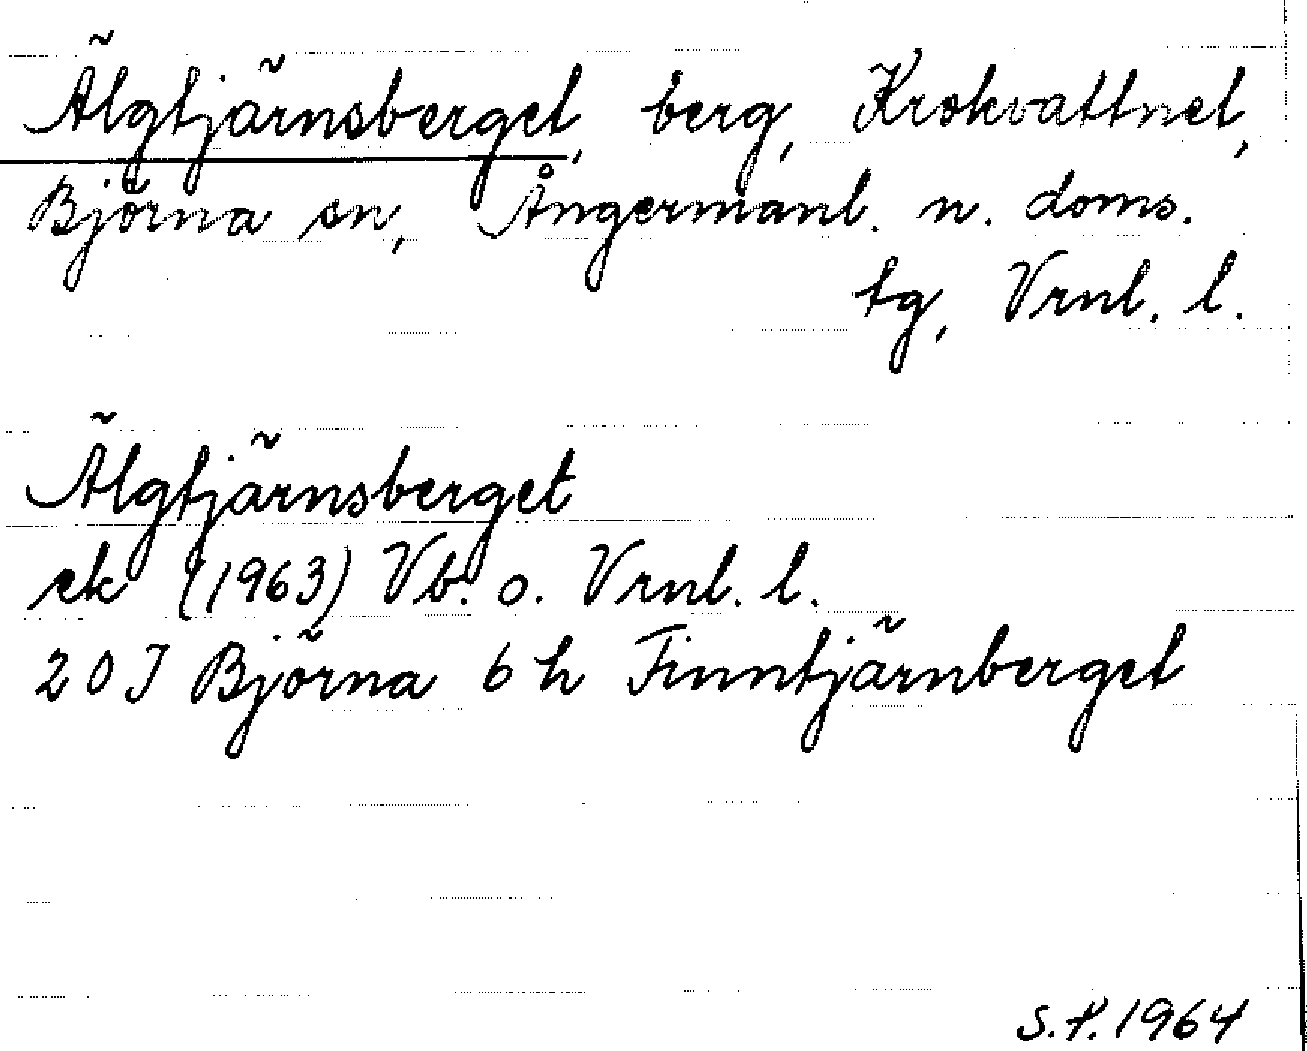 Älgtjärnsberget, berg, Krokvattnet,
Björna sn, Ångermanl. n. doms.
tg, Vrnl. l.
Älgtjärnsberget
ek (1963) Vb. o. Vrnl. l.
20J Björna 6h Finntjärnberget
S.P. 1964